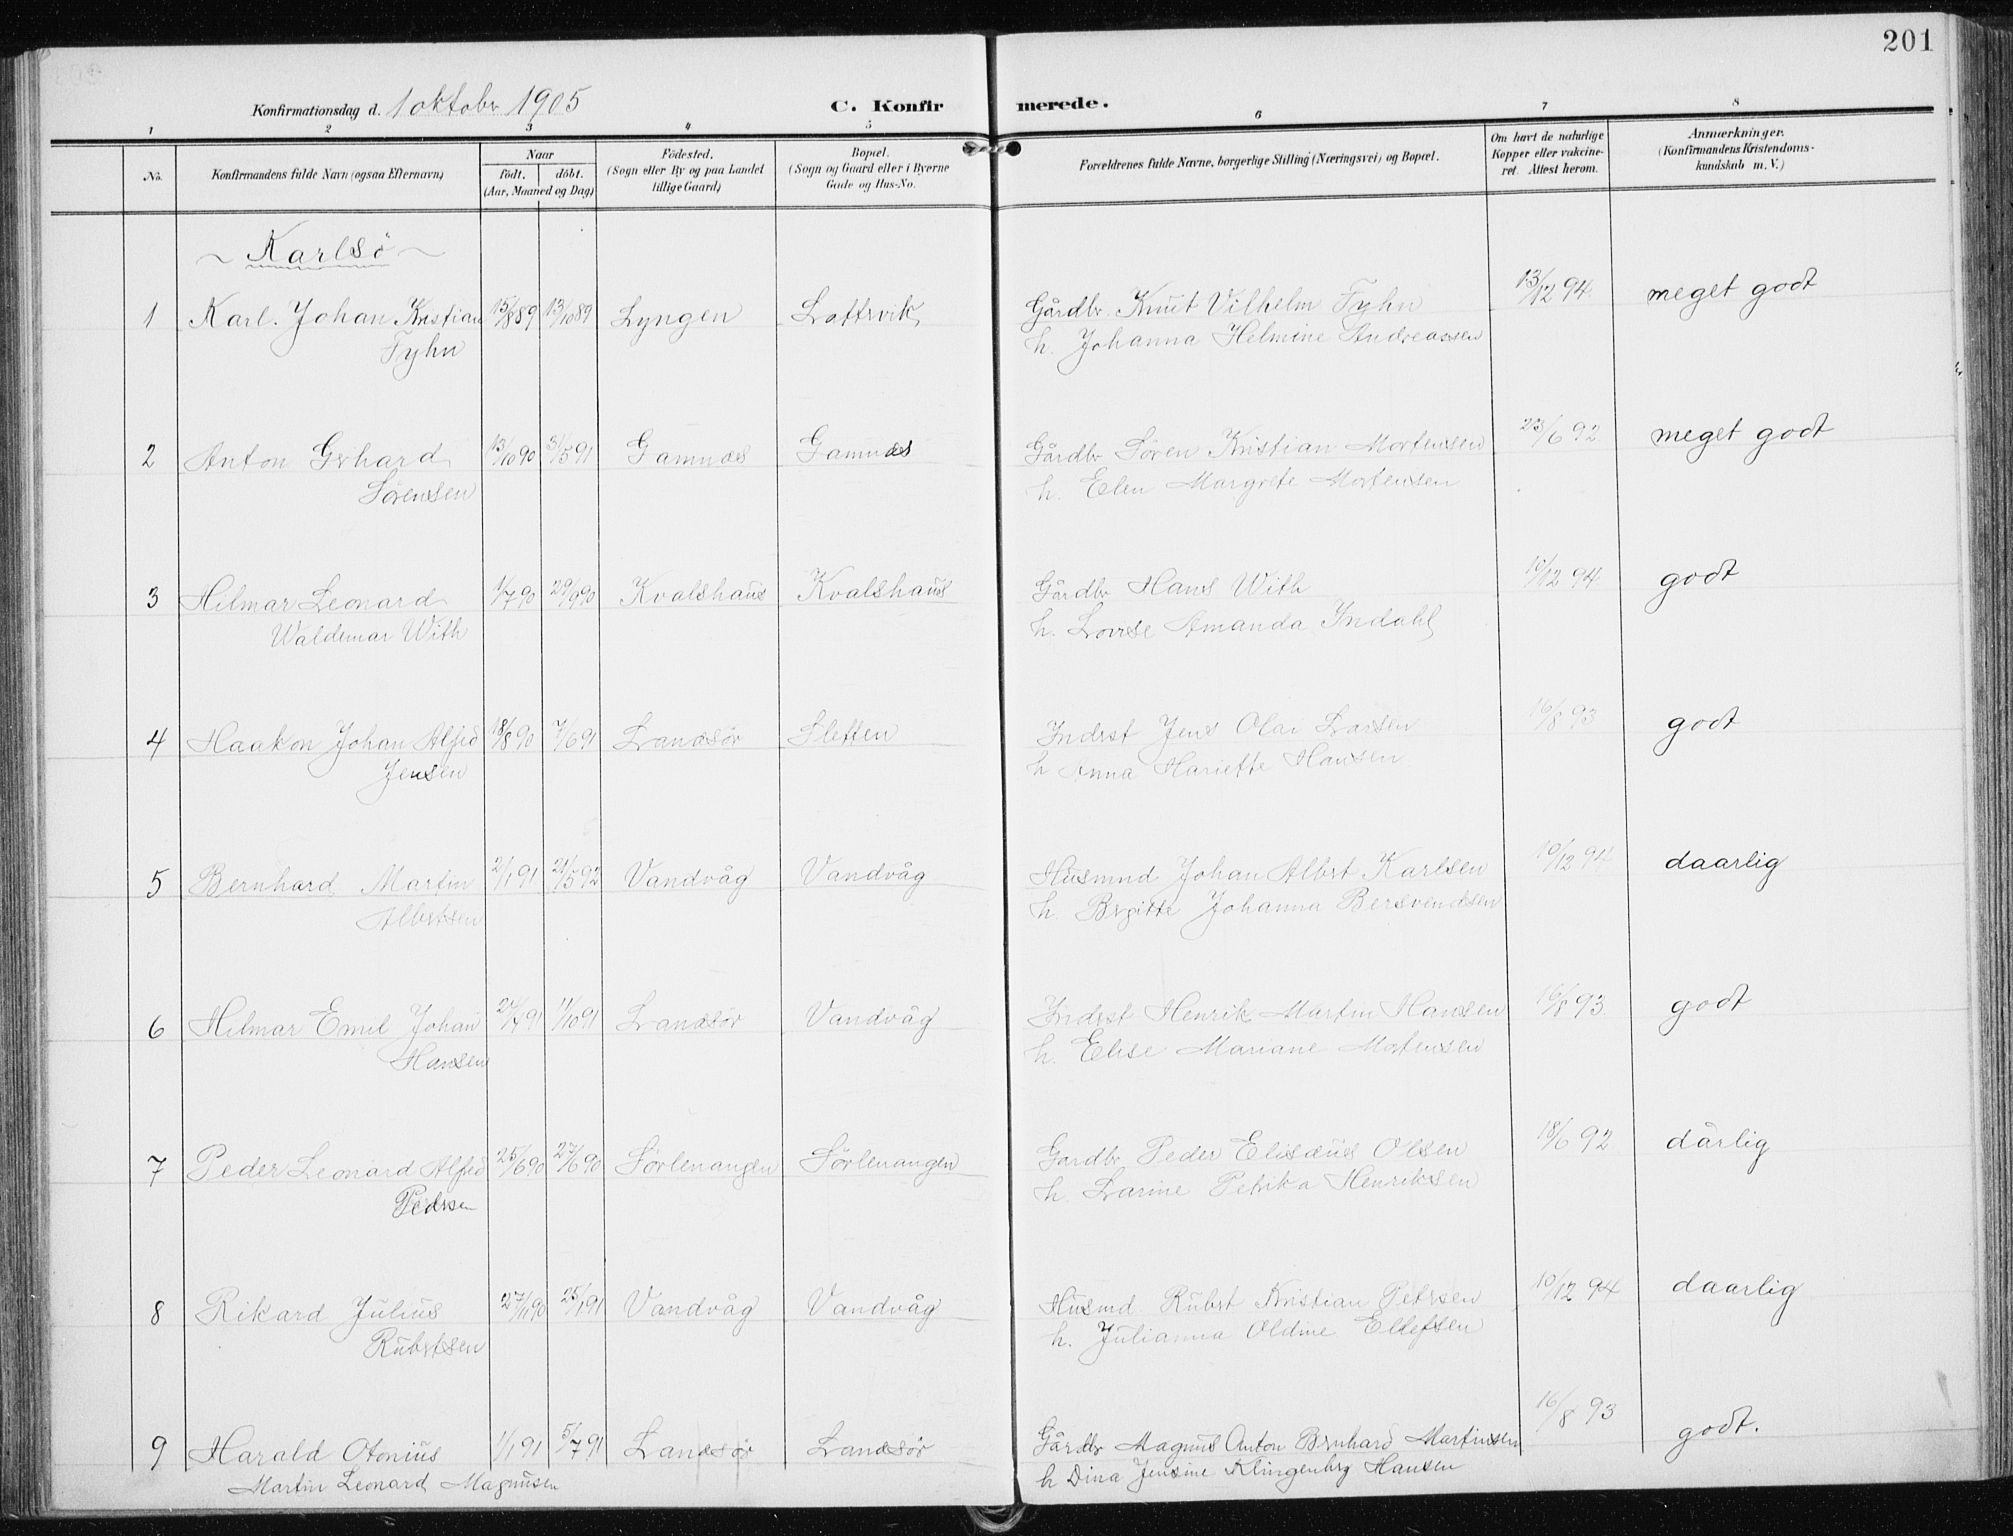 201
Konfirmationsdag d. 1 oktober 1905 C. Konfirmerede.
1 2 3 4 5 6 7 8
No.
Konfirmandens fulde Navn (ogsaa Efternavn)
Naar
födt. döbt.
(Aar, Maaned og Dag)
Födested.
(Sogn eller By og paa Landet
tillige Gaard)
Bopæl.
(Sogn og Gaard eller i Byerne
Gade og Hus-No.
Forældrenes fulde Navne, borgerlige Stilling (Næringsvei) og Bopæl.
Om havt de naturlige
Kopper eller vakcine-
ret. Attest herom.
Anmærkninger.
(Konfirmandens Kristendoms-
kundskab m. V.)
~ Karlsö ~
1 Karl. Johan Kristian 15/8 89 13/10 89 Lyngen Lattervik Gårdbr. Knut Vilhelm Fyhn 13/12 94 meget godt
Fyhn h. Johanna Helmine Andreassen
2 Anton Gerhard 13/10 90 31/5 91 Gamnæs Gamnæs Gårdbr Sören Kristian Mortensen 23/6 92 meget godt
Sörensen h. Elen Margrete Mortensen
3 Hilmar Leonard 1/7 90 29/9 90 Kvalshaus Kvalshaus Gårdbr Hans With 10/12 94 godt
Waldemar With h. Lovise Amanda Indahl
4 Haakon Johan Alfred 18/8 90 7/6 91 Lanesör Sletten Inderst Jens Olai Larsen 16/8 93 godt
Jensen h Anna Hariette Hansen
5 Bernhard Martin 2/1 91 21/5 92 Vandvåg Vandvåg Husmnd Johan Albert Karlsen 10/12 94 daarlig
Albertsen h. Bergitte Johanna Bersvendsen
6 Hilmar Emil Johan 24/7 91 11/10 91 Lanesör Vandvåg Inderst Henrik Martin Hansen 16/8 93 godt
Hansen h. Elise Mariane Mortensen
7 Peder Leonard Alfred 25/6 90 27/6 90 Sörlenangen Sörlenangen Gardbr Peder Elisæus Olsen 18/6 92 dårlig
Pedersen h. Larine Petrika Henriksen
8 Rikard Julius 27/11 90 25/1 91 Vandvåg Vandvåg Husmd. Rubert Kristian Petersen 10/12 94 daarlig
Rubertsen h. Julianna Oldine Ellefsen
9 Harald Otonius 1/1 91 5/7 91 Lanesör Lanesör Gårdbr Magnus Anton Bernhard Martinsen 16/8 93 godt.
Martin Leonard Magnusen h Dina Jensine Klingenberg Hansen